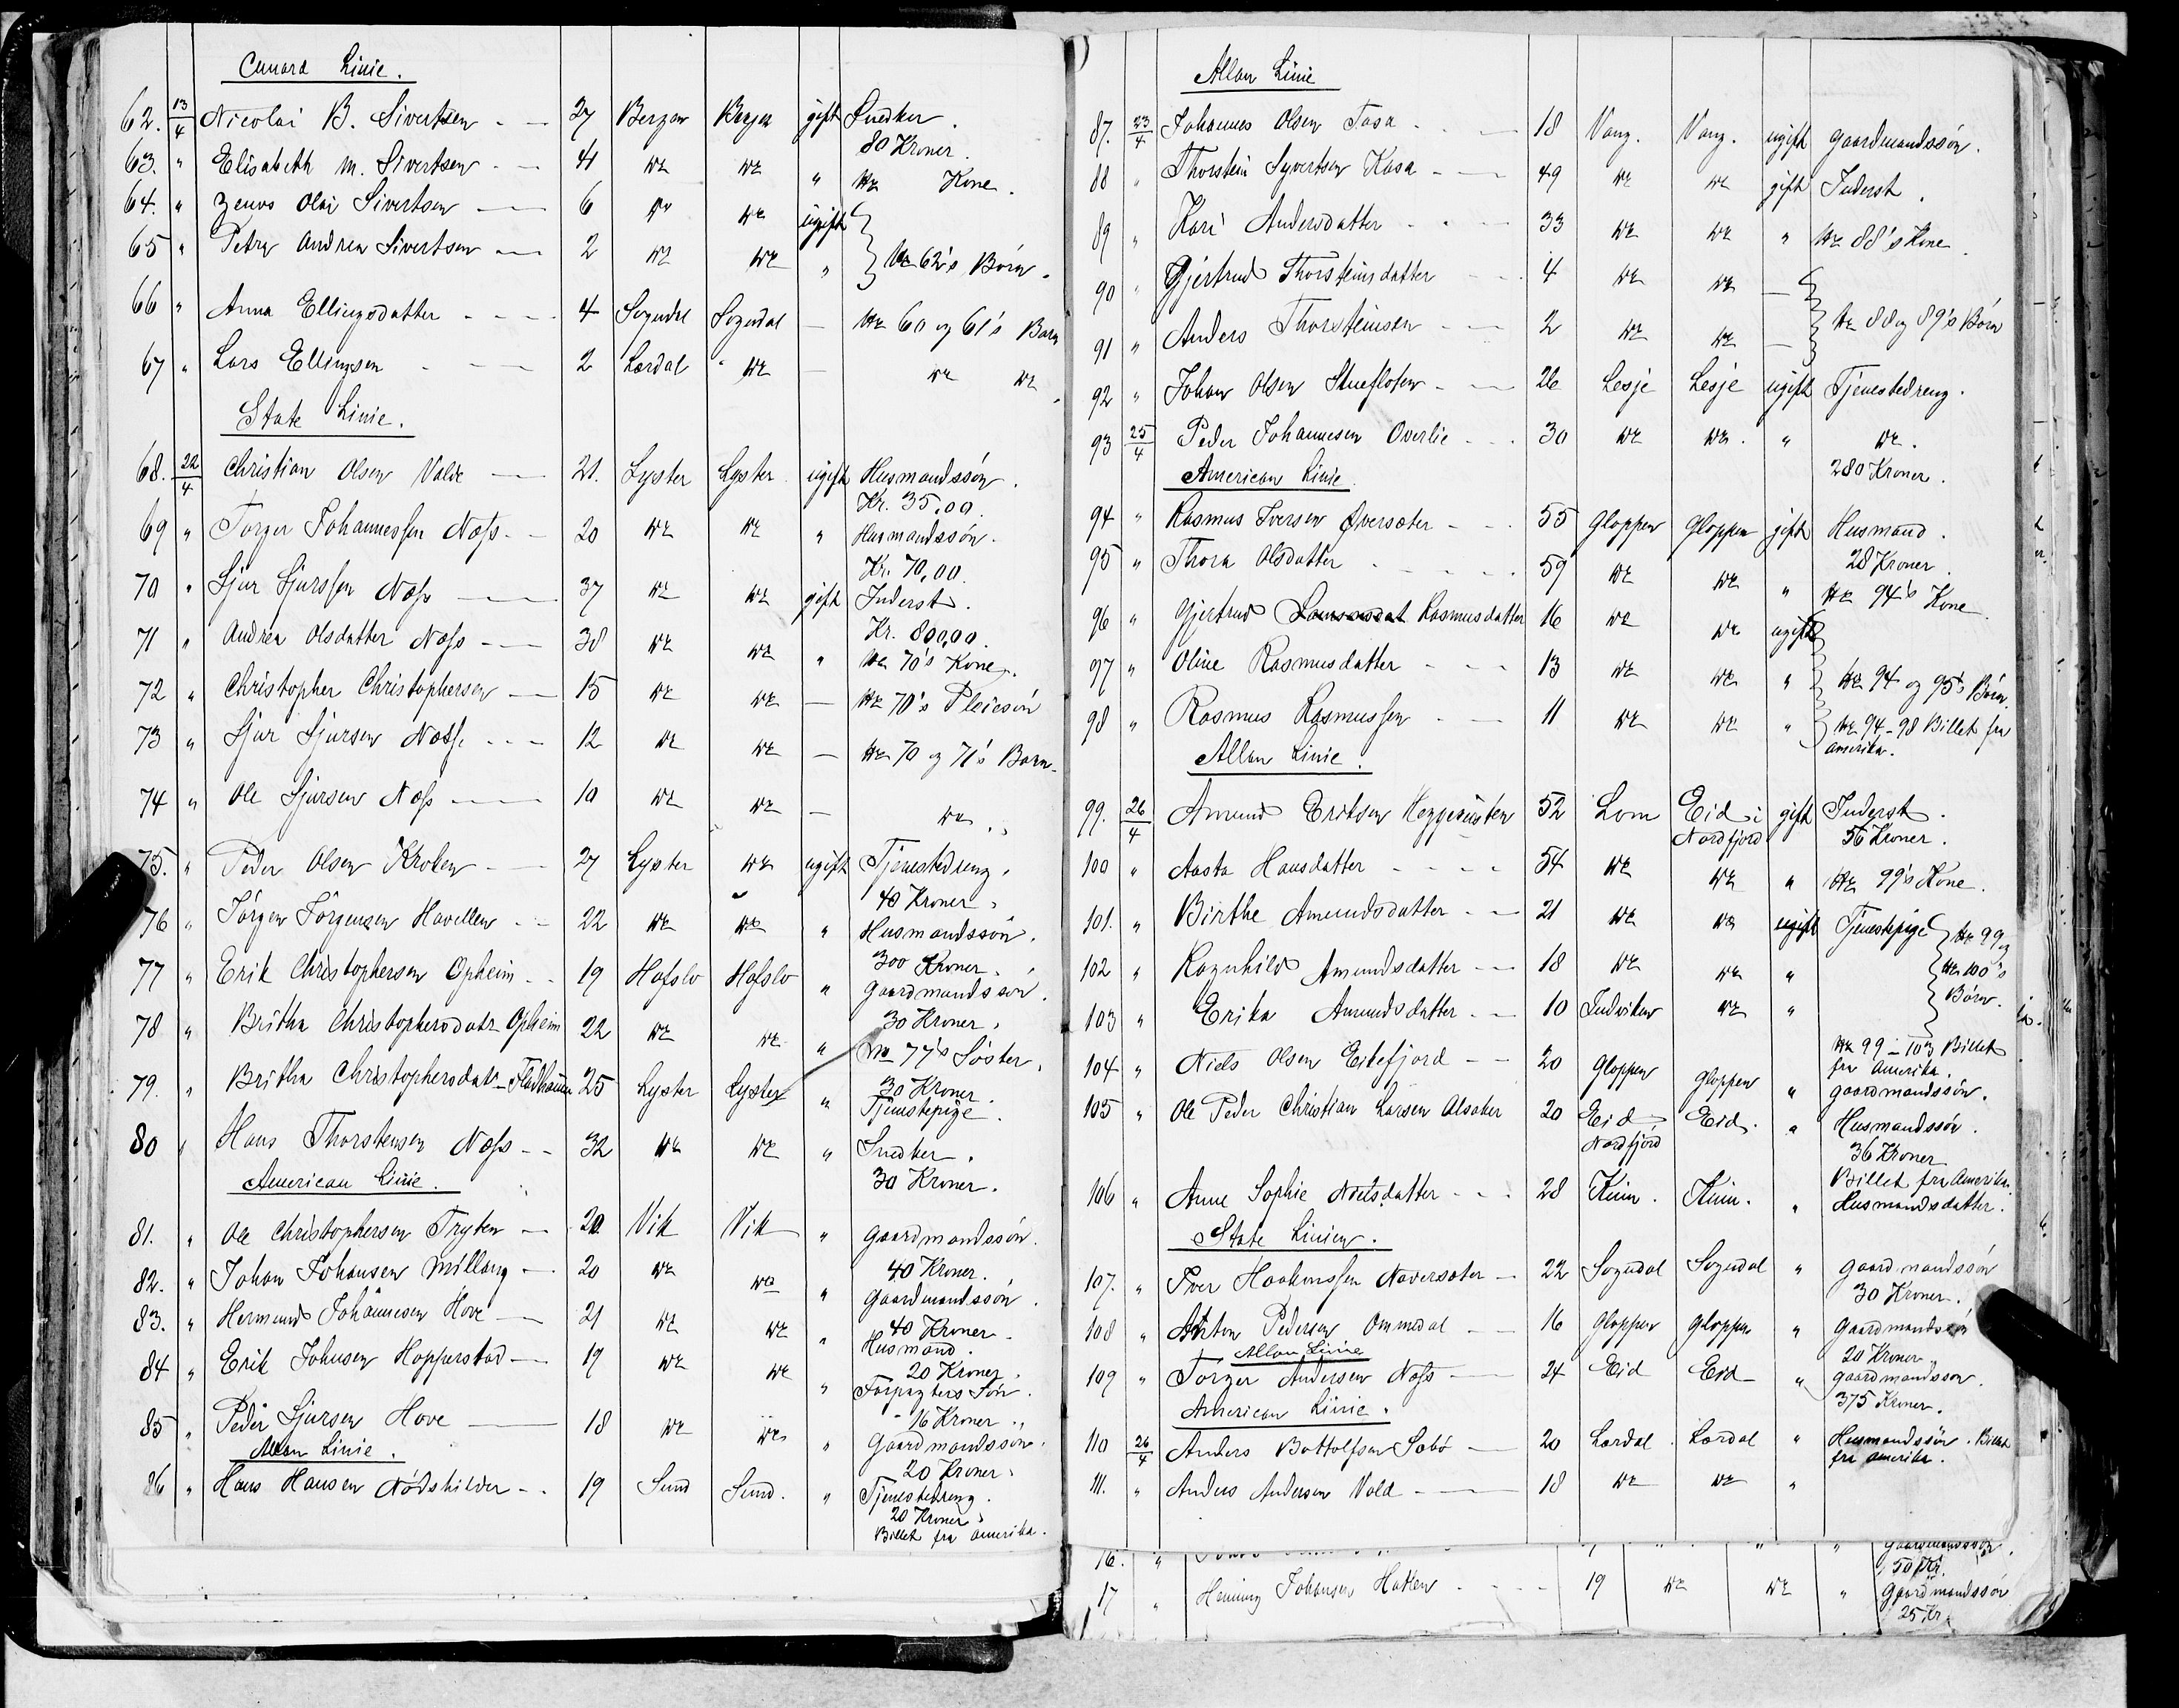 Cunard Linie.
62. 13/4 Nicolai B. Sivertsen 27 Bergen Bergen gift Snedker.
80 Kroner.
63. " Elisabeth M. Sivertsen 41 do do " No Kone.
64. " Olai Sivertsen 6 do do ugift
65 " Petra Andrea Sivertsen 2 do do " No 62's Börn.
66 " Anna Ellingsdatter 4 Sogndal Sogndal — No 60 og 61's Barn
67 " Lars Ellingsen 2 Lærdal do — do do
State Linie.
68. 22/4 Christian Olsen Valde 21. Lyster Lyster ugift Husmandssön.
Kr. 35,00.
69 " Torger Johannessen Næss 20 do do " Husmandssön.
Kr. 70,00.
70 " Sjur Sjurssen Næss 37 do do gift Inderst.
Kr. 800,00.
71 " Andrea Olsdatter Næss 38 do do " No 70's Kone.
72 " Christopher Christophersen 15 do do — No 70's Pleiesön
73 " Sjur Sjursen Næss 12 do do — No 70 og 71's Barn
74 " Ole Sjursen Næss 10 do do — do
75. " Peder Olsen Kroken 27 Lyster do ugift Tjenestedreng.
40 Kroner.
76 " Jörgen Jörgensen Havellen 22 do do " Husmandssön.
300 Kroner.
77 " Erik Christophersen Opheim 19 Hafslo Hafslo " Gaardmandssön.
30 Kroner.
78 " Britha Christophersdatr Opheim 22 do do " No 77's Söster.
30 Kroner.
79. " Britha Christophersdatr 25 Lyster Lyster " Tjenestepige.
80 " Hans Thorstensen Næss 32 do do " Snedker.
30 Kroner.
American Linie.
81. " Ole Christophersen Tryten 20 Vik Vik " Gaardmandssön.
40 Kroner.
82. " Johan Johansen Millang 20 do do " Gaardmandssön.
40 Kroner.
83. " Hermund Johannesen Hove 21 do do " Husmand.
20 Kroner.
84 " Erik Johnsen Hopperstad 19 do do " Forpagters Sön.
16 Kroner.
85 " Peder Sjursen Hove 18 do do " Gaardmandssön.
20 Kroner.
Allan Linie.
86 " Hans Hansen Nödskilder 19 Sund Sund. " Tjenestedreng.
20 Kroner.
Billet fra Amerika.
Allan Linie
87. 23/4 Johannes Olsen Tasa 18 Vang. Vang. ugift Gaardmandssön.
88 " Thorstein Syvertsen Kasa 49 do do gift Inderst.
89 " Kari Andersdatter 33 do do " No 88's Kone.
90 " Gjertrud Thorsteinsdatter 4 do do —
91 " Anders Thorsteinsen 2 do do — No 88 og 89's Börn
92 " Johan Olsen Stuefloten 26 Lesje Lesje ugift Tjenestedreng.
93 25/4 Peder Johannesen Overlie 30 do do. " do.
280 Kroner.
American Linie.
94 " Rasmus Iversen Översæter 55 Gloppen Gloppen gift Husmand.
28 Kroner.
95 " Thora Olsdatter 59 do do " No 94's Kone
96 " Gjertrud Rasmusdatter 16 do do ugift
97 " Oline Rasmusdatter 13 do do " No 94 og 95's Börn.
98 " Rasmus Rasmussen 11 do do " No 94-98 Billet fra
Amerika.
Allan Linie.
99. 26/4 Amund Eriksen 52 Lom Eid i gift Inderst.
Nordfjord 56 Kroner.
100 " Aasta Hansdatter 54 do do " No 99's Kone.
101. " Birthe Amundsdatter 21 do do ugift Tjenestepige No 99 og
102 " Ragnhild Amundsdatter 18 do do " No 100's
103 " Erika Amundsdatter 10 Indviken do " Börn.
No 99-103 Billet
fra Amerika.
104 " Niels Olsen Eikefjord 20 Gloppen Gloppen " Gaardmandssön.
105 " Ole Peder Christian Larsen Alsaker 20 Eid Eid. " Husmandssön.
Nordfjord 36 Kroner
Billet fra Amerika.
106 " Anne Sophie Nielsdatter 28 Kinn. Kinn. " Husmandsdatter.
State Linien.
107. " Iver Haakonssen Naversæter 22 Sogndal Sogndal " Gaardmandssön
30 Kroner.
108 " Anton Pedersen Ommedal 16 Gloppen Gloppen " Gaardmandssön
20 Kroner.
Allan Linie
109 " Torger Andersen Næss 24 Eid Eid " Gaardmandssön.
375 Kroner.
American Linie.
110 26/4 Anders Bottolfsen Sæbö 20 Lærdal. Lærdal " Husmandssön. Billet
fra Amerika.
111. " Anders Andersen Vold 18 do do "
16. " " Gaardmandssön.
50 Kr.
17 " Henning Johansen Hatlen 19 do do " Gaardmandssön
25 Kr.